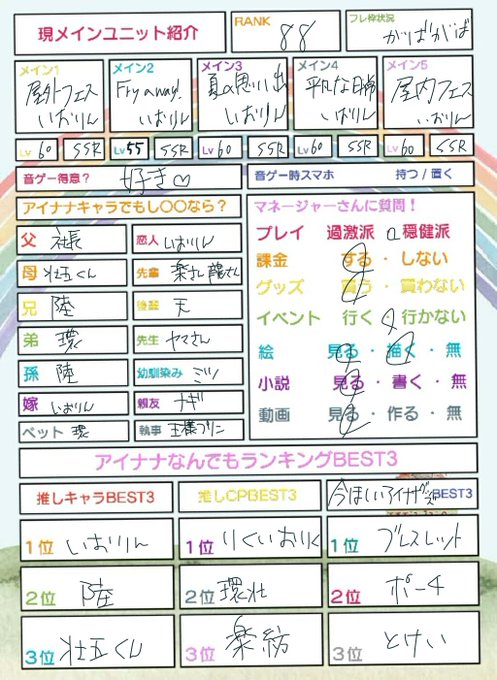 現メインユニット紹介 RANK 88 フレ枠状況 がばがば
メイン1 屋外フェス いおりん
メイン2 Fry away! いおりん
メイン3 夏の思い出 いおりん
メイン4 平凡な日常 いおりん
メイン5 屋内フェス いおりん
Lv 60 SSR Lv 55 SSR Lv 60 SSR Lv 60 SSR Lv 60 SSR
音ゲー得意? 好き♡ 音ゲー時スマホ 持つ / 置く
アイナナキャラでもし〇〇なら?
父 社長 恋人 いおりん
母 壮五くん 先輩 楽さん 龍さん
兄 陸 後輩 天
弟 環 先生 ヤマさん
孫 陸 幼馴染み ミツ
嫁 いおりん 親友 ナギ
ペット 環 執事 王様プリン
マネージャーさんに質問!
プレイ 過激派 ・ 穏健派
課金 する・しない
グッズ 買う・買わない
イベント 行く・行かない
絵 見る・描く・無
小説 見る・書く・無
動画 見る・作る・無
アイナナなんでもランキングBEST3
推しキャラBEST3
1位 いおりん
2位 陸
3位 壮五くん
推しCPBEST3
1位 りくいおりく
2位 環壮
3位 楽紡
今ほしいアイナナグッズBEST3
1位 ブレスレット
2位 ポーチ
3位 とけい